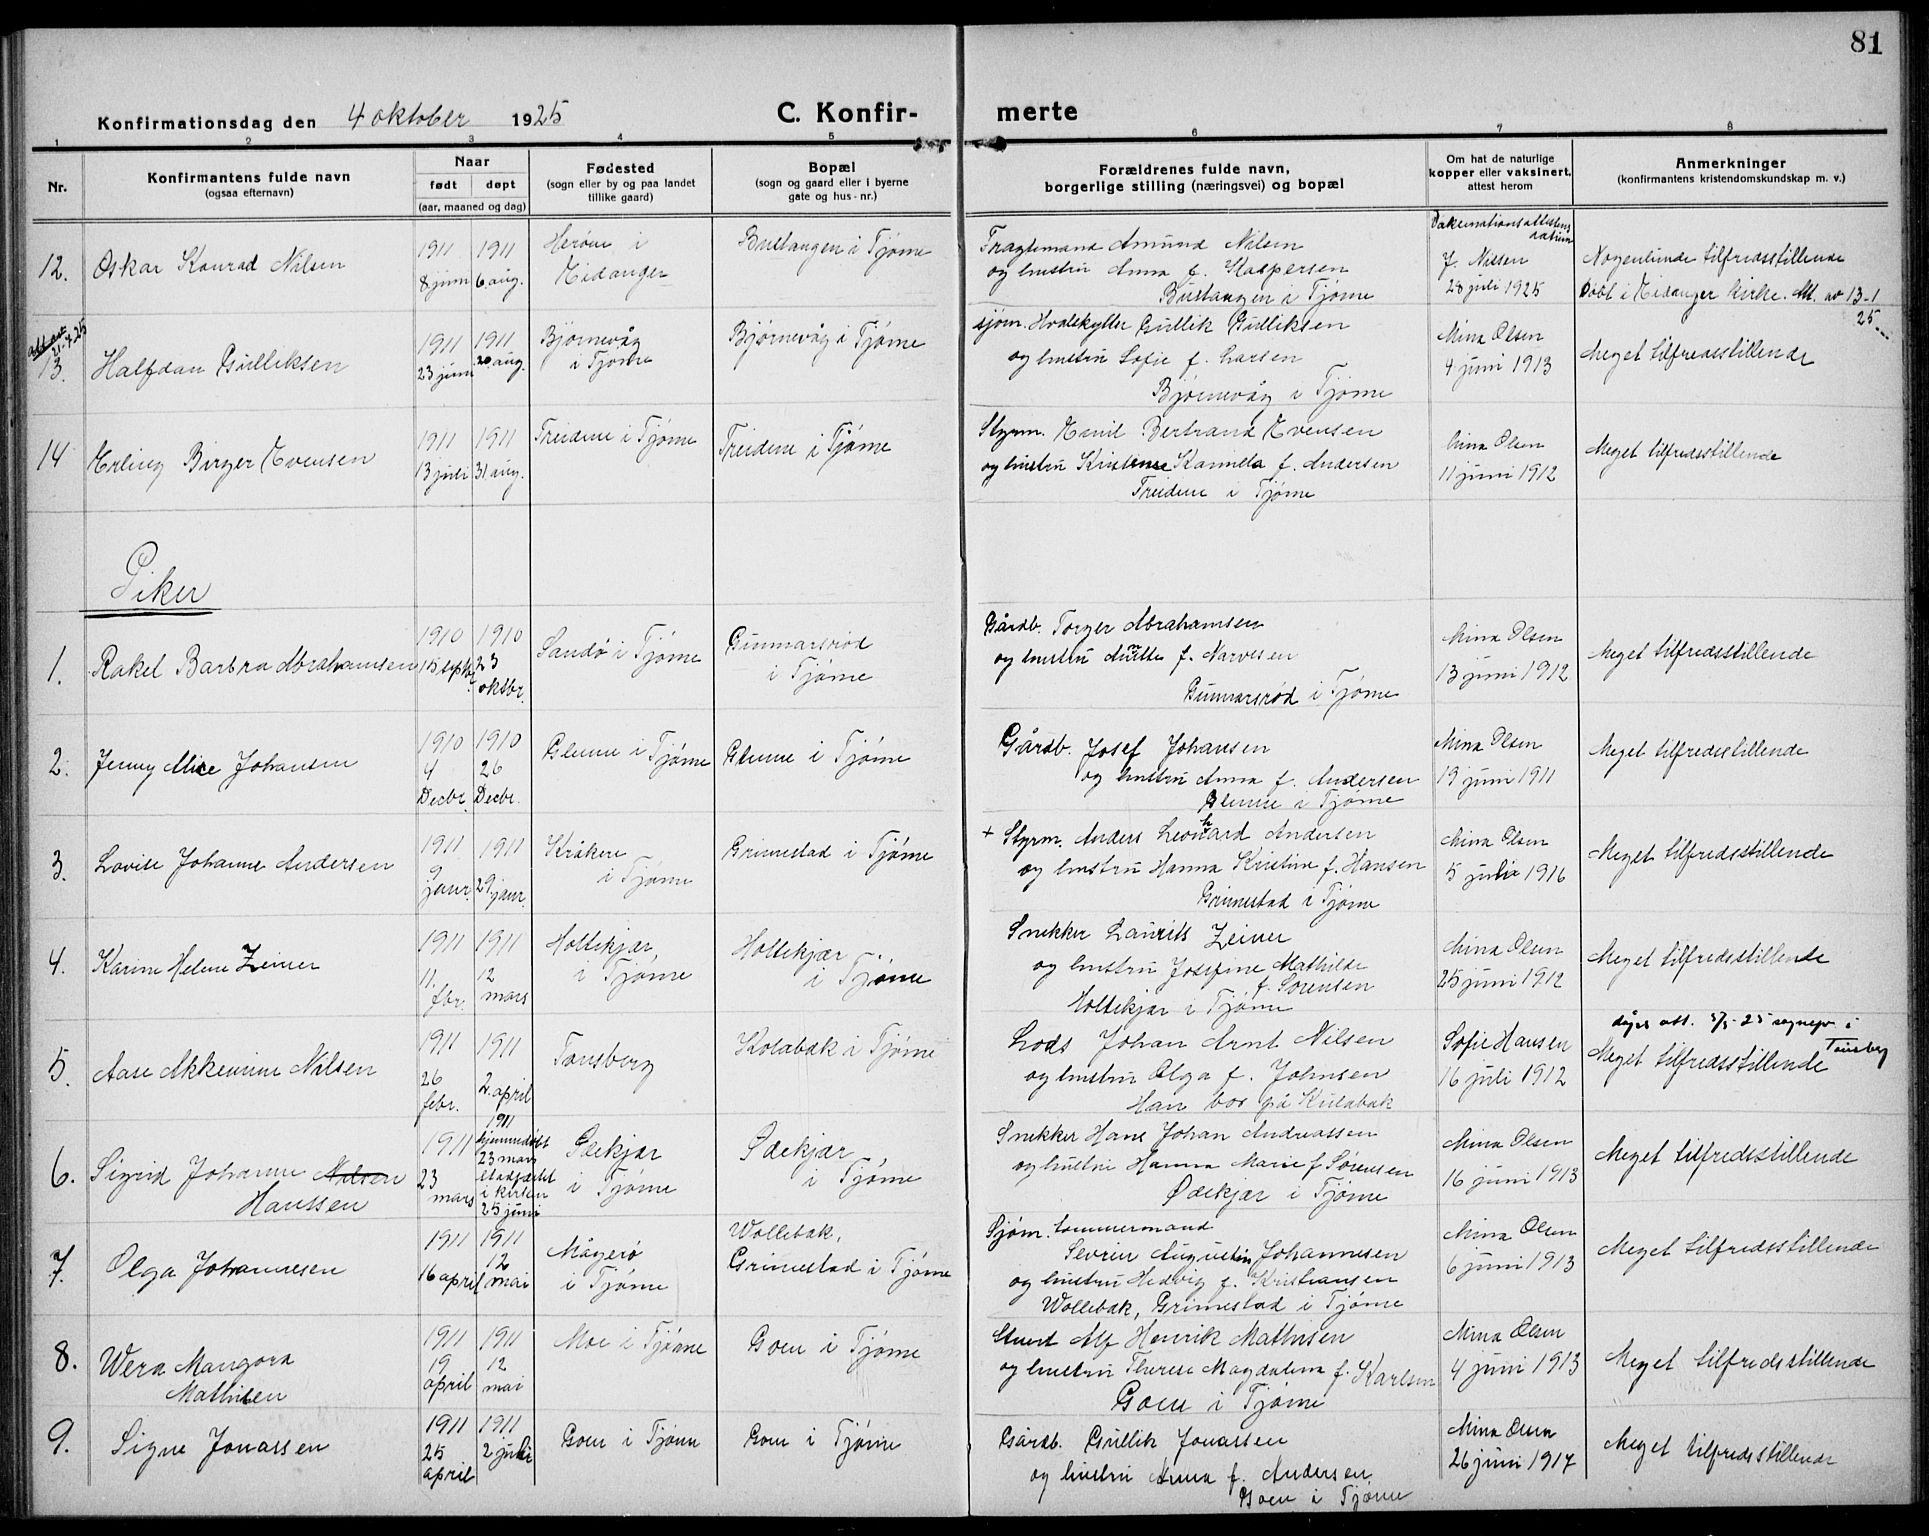 81
Konfirmationsdag den 4 oktober 1925
C. Konfir-
merte
1 2 3 4 5 6 7 8
Nr.
Konfirmantens fulde navn
(ogsaa efternavn)
Naar
født døpt
(aar, maaned og dag)
Fødested
(sogn eller by og paa landet
tillike gaard)
Bopæl
(sogn og gaard eller i byerne
gate og hus-nr.)
Forældrenes fulde navn,
borgerlige stilling (næringsvei) og bopæl
Om hat de naturlige
kopper eller vaksinert,
attest herom
Anmerkninger
(konfirmantens kristendomskundskap m. v.)
12. Oskar Konrad Nilsen
1911
8 juni
1911
6. aug.
Herøen i
Eidanger
Bustangen i Tjøme
Fragtemand Amund Nilsen
og hustru Anna f. Kaspersen
Bustangen i Tjøme
Vaksinationsattestens
datum
J. Nilsen
28 juli 1925
Nogenlunde tilfredsstillende
Døbt i Eidanger kirke. Att. av 13-1
25
21-4.25
13. Halfdan Gulliksen
1911
23 juni
1911
20 aug.
Bjørnevåg
i Tjøme
Bjørnevåg i Tjøme
sjøm. Hvalskytter Gullik Gulliksen
og hustru Sofie f. Larsen
Bjørnevåg i Tjøme
Mina Olsen
4 juni 1913
Meget tilfredsstillende
14 Erling Birger Evensen
1911
13 juli
1911
31 aug.
Treidene i Tjøme
Treidene i Tjøme
Styrm. Emil Bertrand Evensen
og hustru Kristense Kamilla f. Andersen
Treidene i Tjøme
Mina Olsen
11 juni 1912
Meget tilfredsstillende
Piker
1. Rakel Barbra Abrahamsen
1910
15 septbr.
1910
23
oktbr.
Sandø i Tjøme
Gunnarsrød
i Tjøme
Gårdb. Torger Abrahamsen
og hustru Anette f. Narvesen
Gunnarsrød i Tjøme
Mina Olsen
13 juni 1912
Meget tilfredsstillende
2. Jenny Alice Johansen
1910
4
Decbr.
1910
26
Decbr.
Glenne i Tjøme
Glenne i Tjøme
Gårdb. Josef Johansen
og hustru Anna f. Andersen
Glenne i Tjøme
Mina Olsen
19 juni 1911
Meget tilfredsstillende
3. Lovise Johanne Andersen
1911
9
janr.
1911
29
janr.
Kråkere
i Tjøme
Grimestad i Tjøme
+ Styrm. Anders Leonhard Andersen
og hustru Hanna Kristine f. Hansen
Grimestad i Tjøme
Mina Olsen
5 juli 1916
Meget tilfredsstillende
4. Karine Helene Zeiner
1911
11.
fbr.
1911
12
mars
Holtekjær,
i Tjøme
Holtekjær
i Tjøme
Snekker Laurits Zeiner
og hustru Josefine Mathilde
f. Sørensen
Holtekjær i Tjøme
Mina Olsen
25 juni 1912
Meget tilfredsstillende
5. Aase Akkemine Nilsen
1911
26
febr.
1911
2. april
Tønsberg
Kolabak i Tjøme
Lods Johan Arnt Nilsen
og hustru Olga f. Johnsen
Han bor på Kulabak
Sofie Hansen
16 juli 1912
Tønsberg
Meget tilfredsstillende
6. Sigrid Johanne Nilsen
Hanssen
1911
23
mars
1911
hjemmedøbt
23 mars
stadfæstet
i kirken
25 juni
Ødekjær
i Tjøme
Ødekjær
i Tjøme
Snekker Hans Johan Andreassen
og hustru Hanna Marie f. Sørensen
Ødekjær i Tjøme
Mina Olsen
16 juni 1913
Meget tilfredsstillende
7. Olga Johannesen
1911
16 april
1911
12
mai
Mågerø
i Tjøme
Wollebæk,
Grimestad i Tjøme
Sjøm. tømmermand
Severin Augustin Johannesen
og hustru Hedvig f. Kristiansen
Wollebæk, Grimestad i Tjøme
Mina Olsen
6 juni 1913
Meget tilfredsstillende
8. Wera Mangora
Mathisen
1911
19
april
1911
12
mai
Moe i Tjøme
Goen i Tjøme
Stuert Alf Henrik Mathisen
og hustru Therese Magdalena f. Karlsen
Goen i Tjøme
Mina Olsen
4 juni 1913
Meget tilfredsstillende
9. Signe Jonassen
1911
25
april
1911
2 juli
Goen i Tjøme
Goen i Tjøme
Gårdb. Gullik Jonassen
og hustru Anna f. Andersen
Goen i Tjøme
Mina Olsen
26 juni 1917
Meget tilfredsstillende